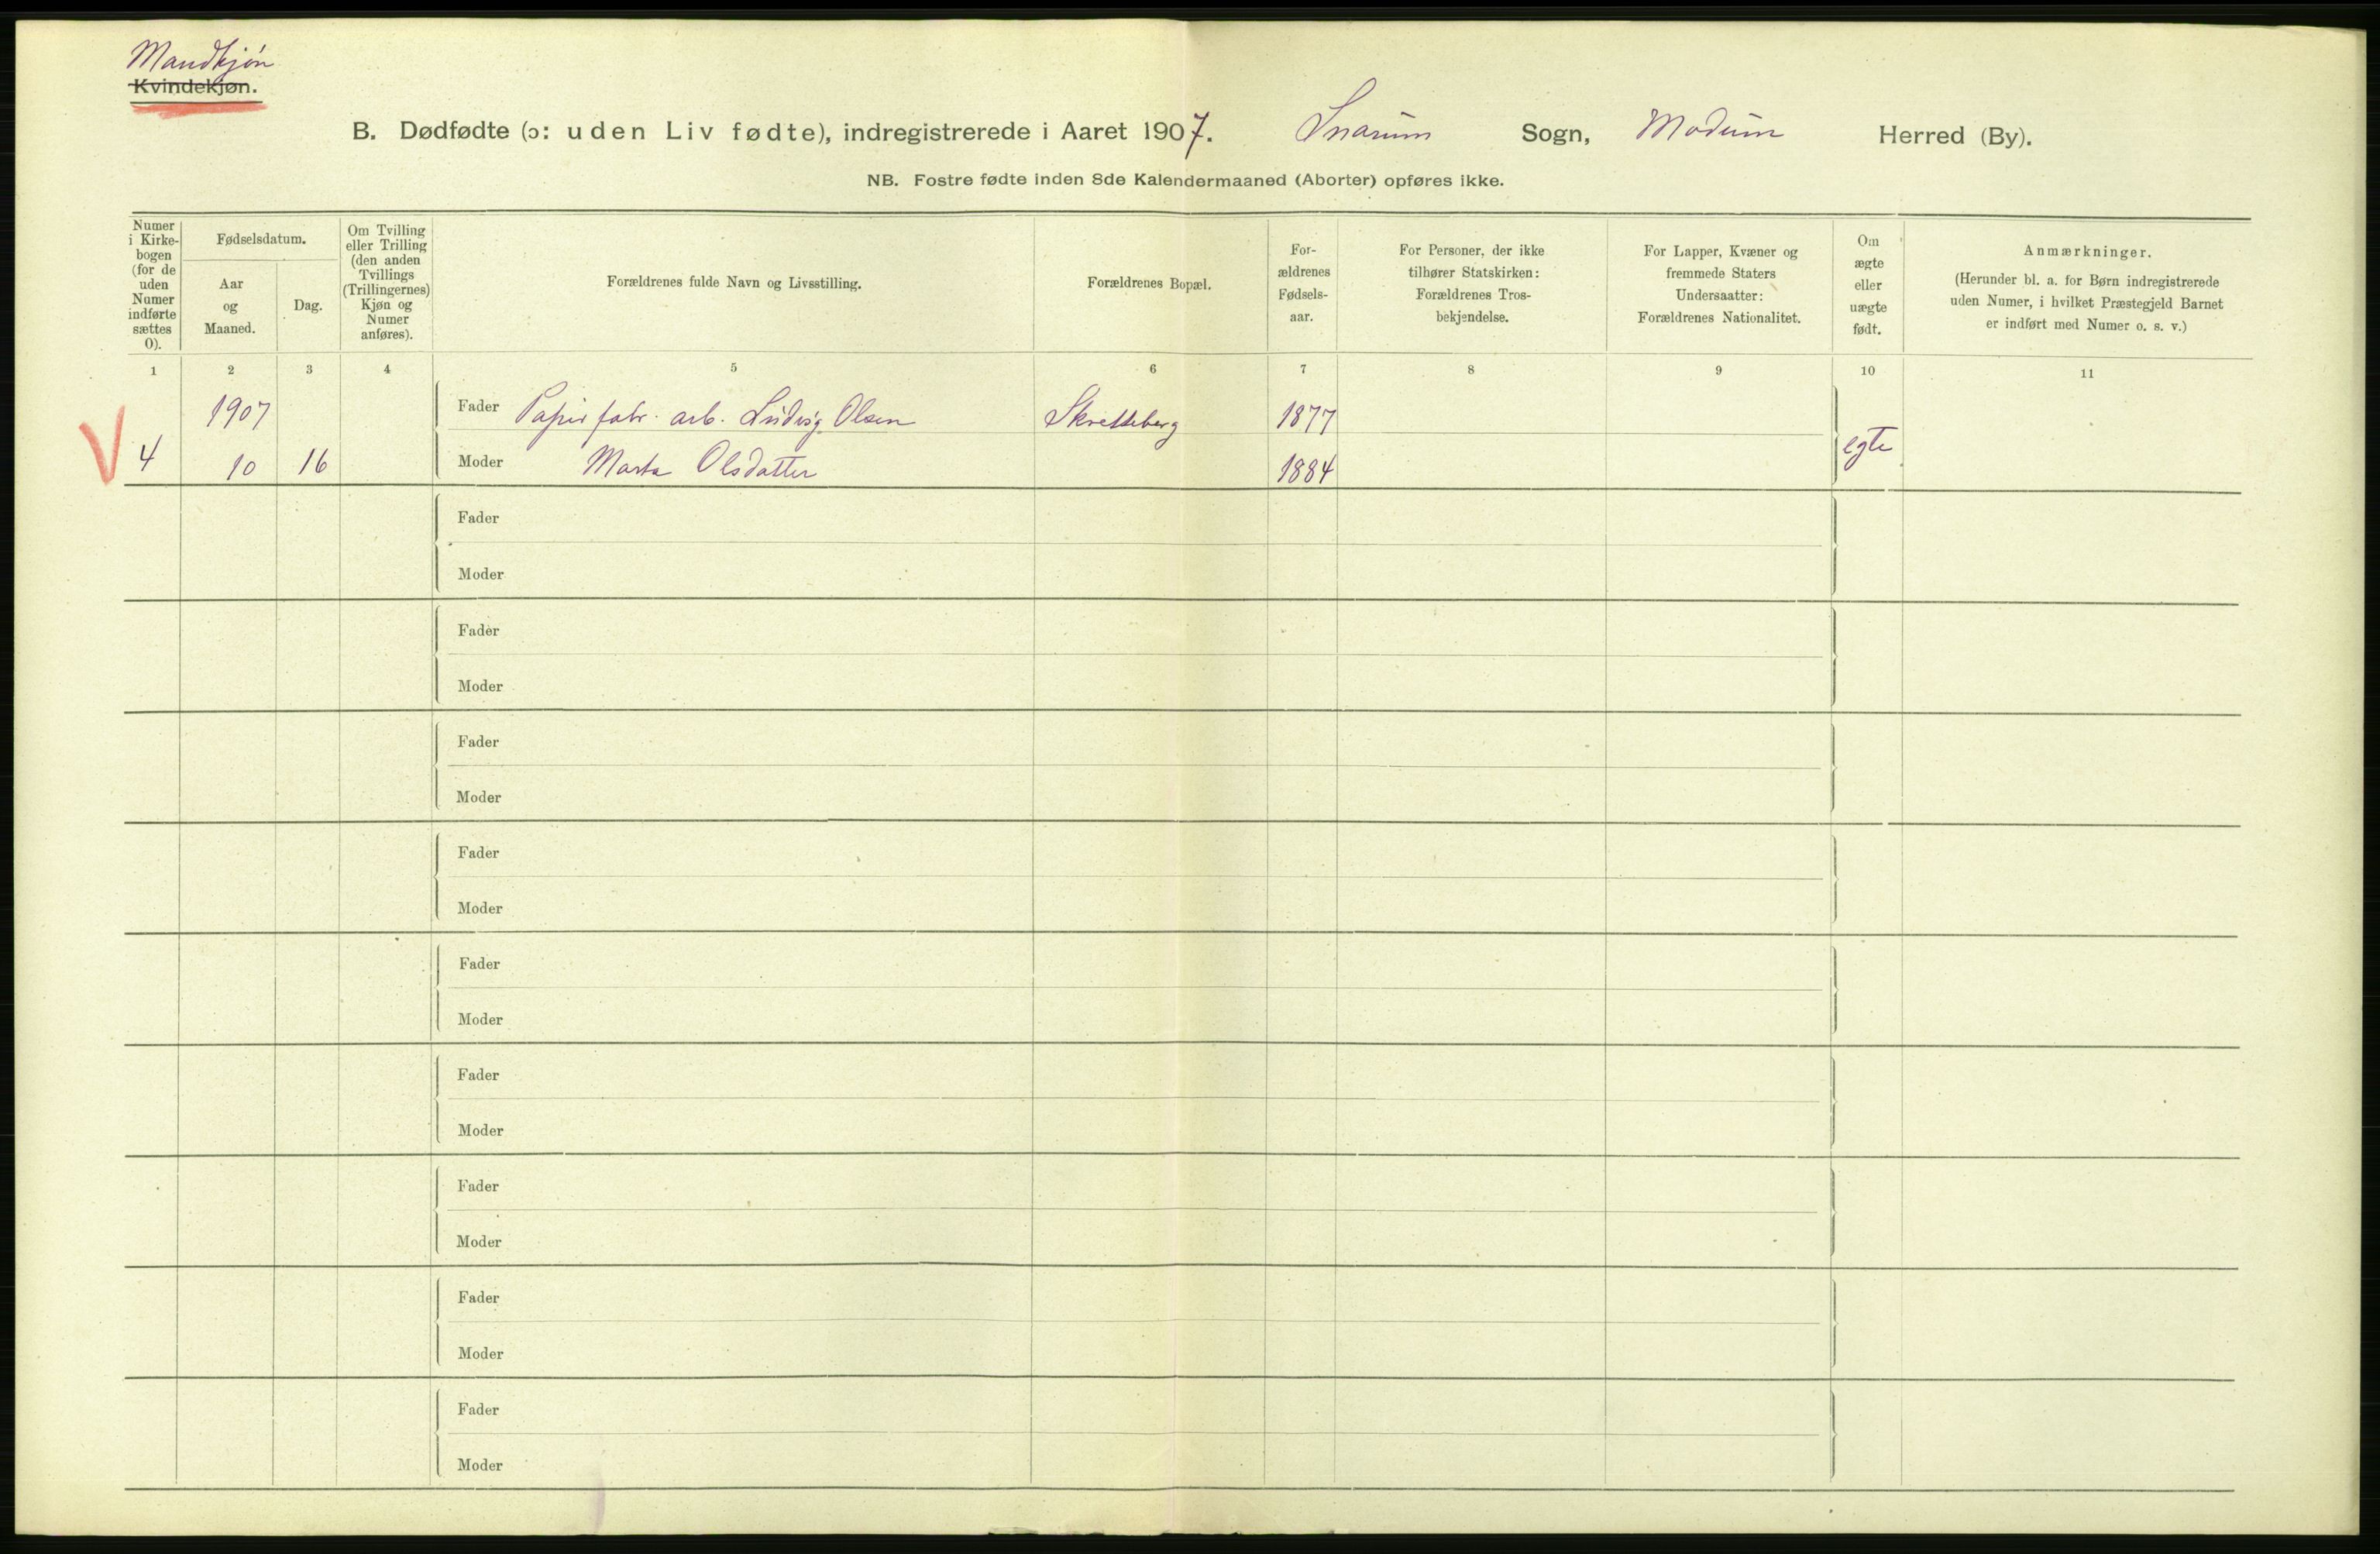 Mandkjøn
Kvindekjøn.
B. Dødfødte (ɔ: uden Liv fødte), indregistrerede i Aaret 1907. Snarum Sogn, Modum Herred (By).
NB. Fostre fødte inden 8de Kalendermaaned (Aborter) opføres ikke.
Numer
i Kirke-
bogen
(for de
uden
Numer
indførte
sættes
0).
Fødselsdatum.
Aar
og
Maaned.
Dag.
Om Tvilling
eller Trilling
(den anden
Tvillings
(Trillingernes)
Kjøn og
Numer
anføres).
Forældrenes fulde Navn og Livsstilling.
Forældrenes Bopæl.
For-
ældrenes
Fødsels-
aar.
For Personer, der ikke
tilhører Statskirken:
Forældrenes Tros-
bekjendelse.
For Lapper, Kvæner og
fremmede Staters
Undersaatter:
Forældrenes Nationalitet.
Om
ægte
eller
uægte
født.
Anmærkninger.
(Herunder bl. a. for Børn indregistrerede
uden Numer, i hvilket Præstegjeld Barnet
er indført med Numer o. s. v.)
1 2 3 4 5 6 7 8 9 10 11
1907 Fader Papirfabr. arb. Ludvig Olsen Skretteberg 1877
4 10 16 Moder Marta Olsdatter 1884 egte
Fader
Moder
Fader
Moder
Fader
Moder
Fader
Moder
Fader
Moder
Fader
Moder
Fader
Moder
Fader
Moder
Fader
Moder